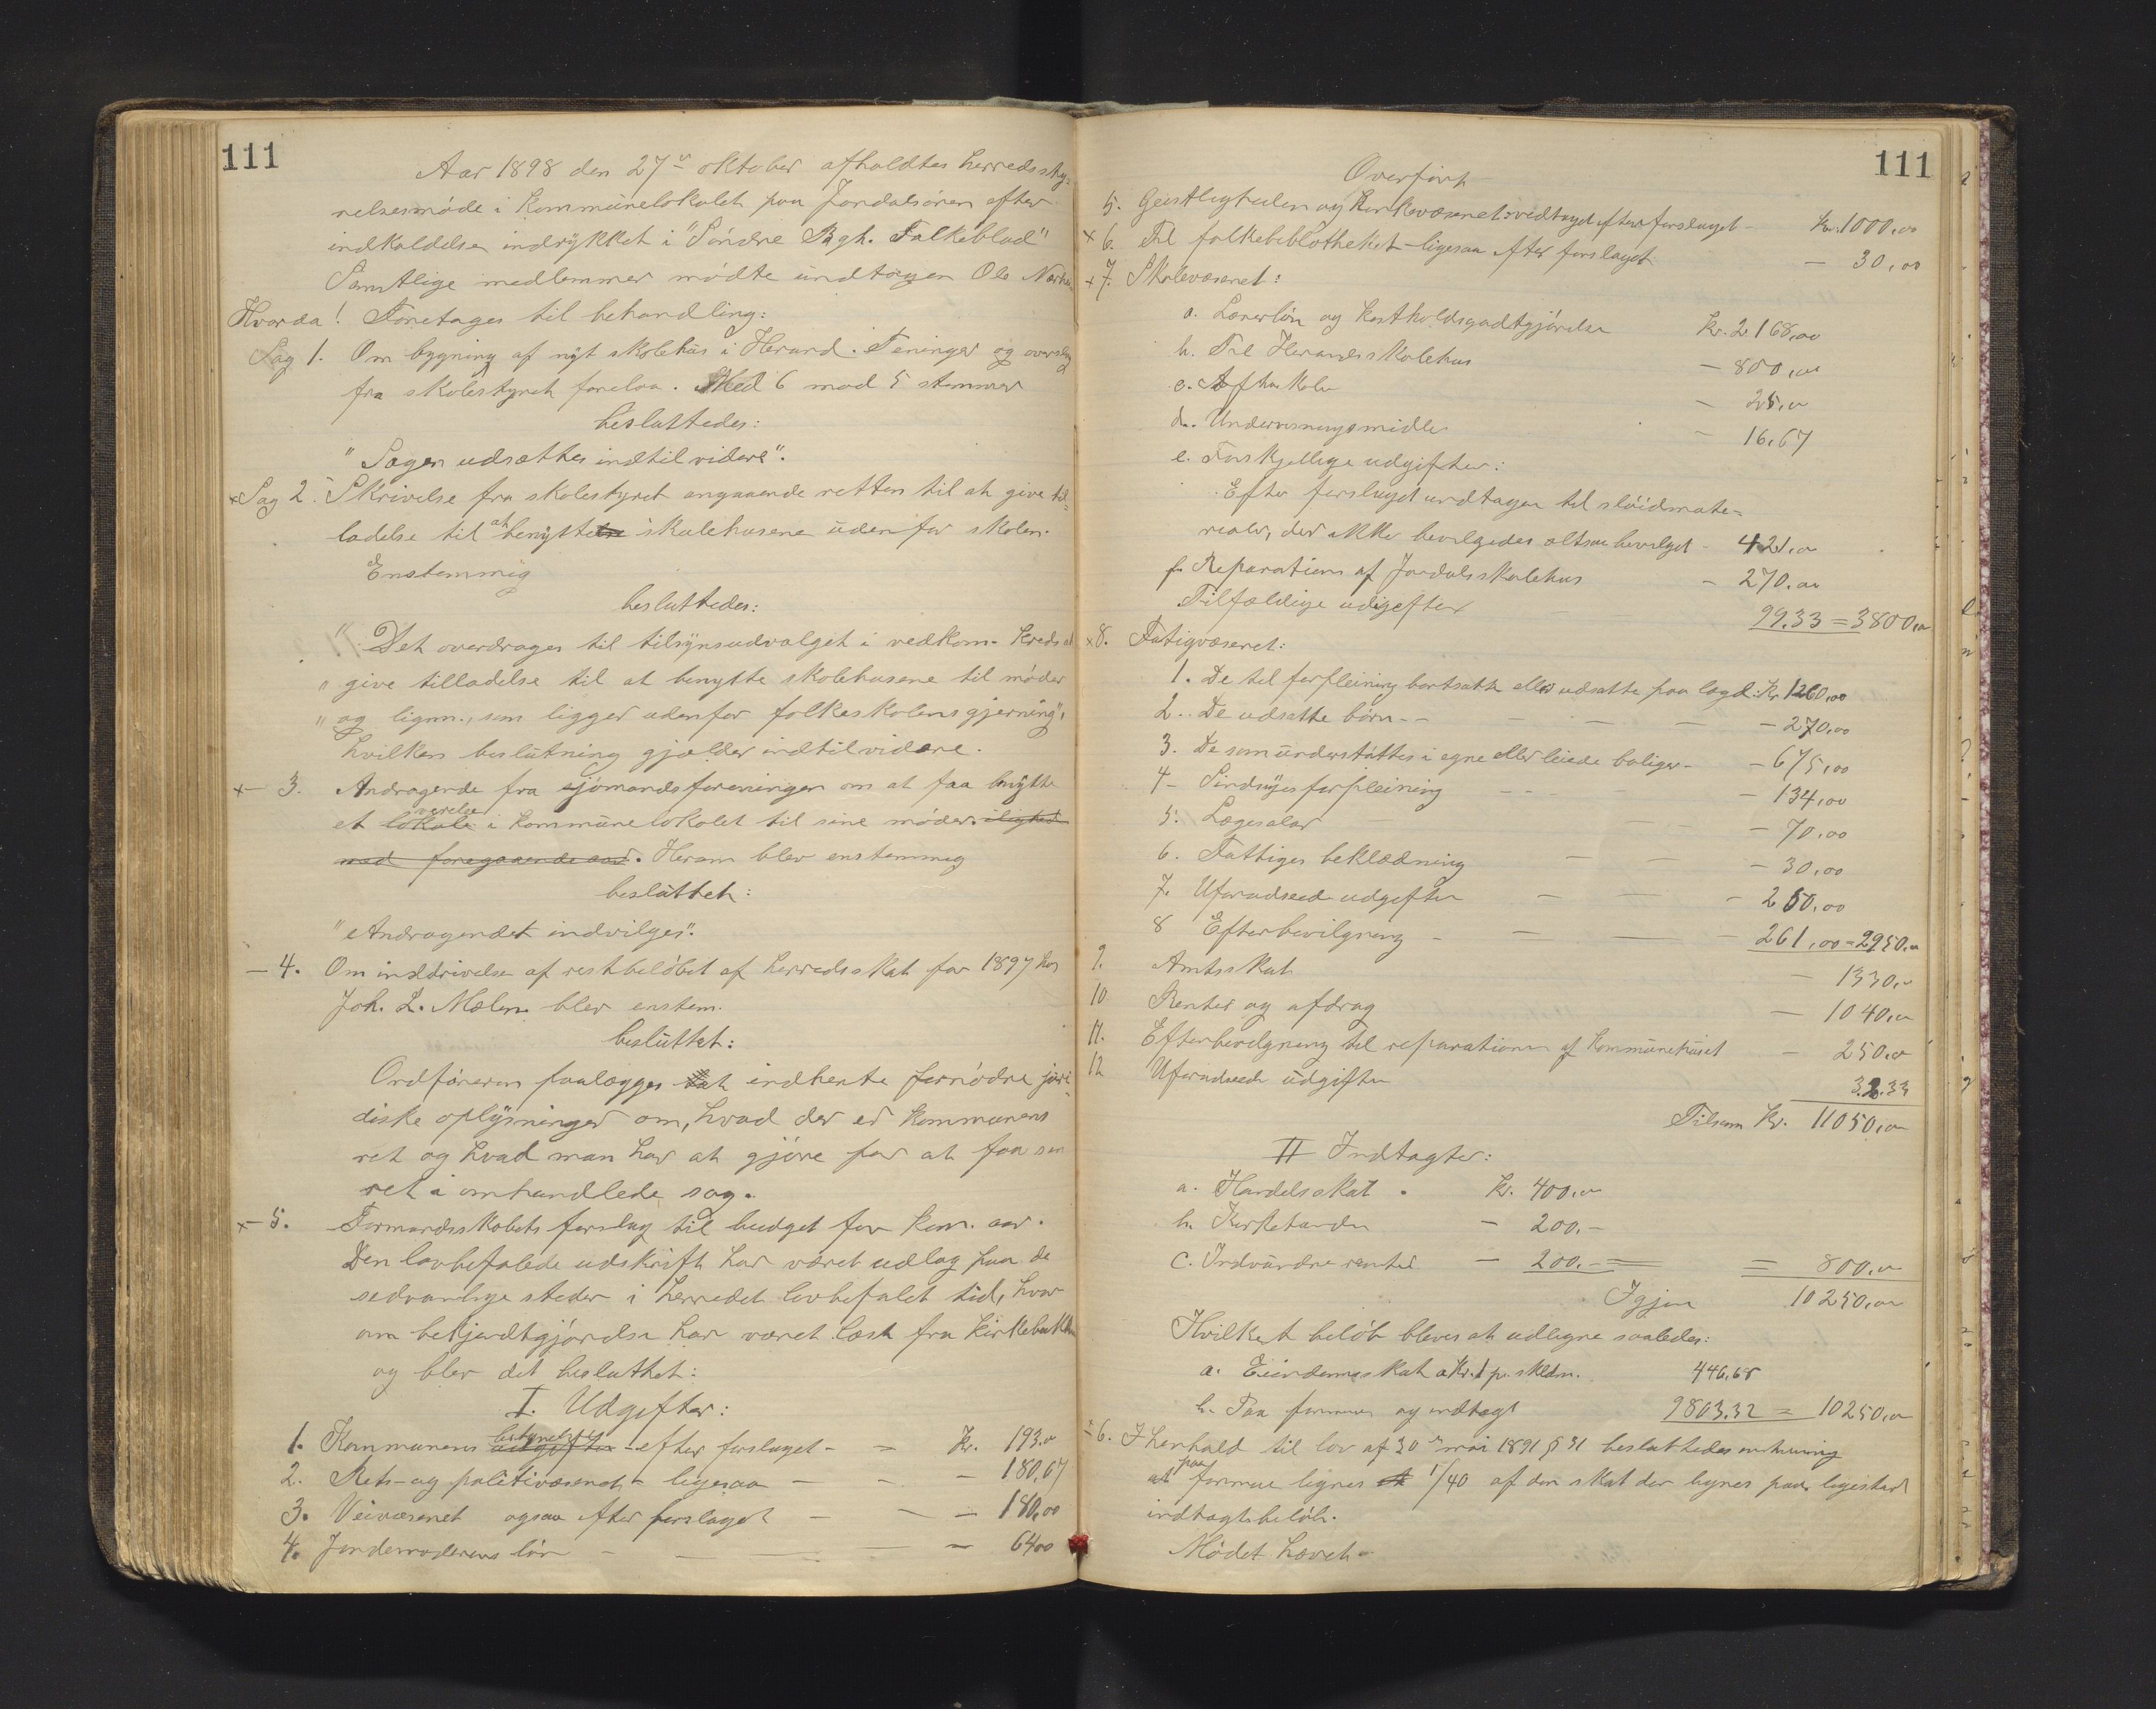 111
Aar 1898 den 27de oktober afholdtes herredssty-
relsesmöde i kommunelokalet paa Jondalsören efter
indkaldelse indrykket i "Söndre Bgh. Folkeblad"
Samtlige medlemmer mödte undtagen Ole
Hvorda! Foretages til behandling:
Sag 1. Om bygning af nyt skolehus i Herand. Tegninger og overslag
fra skolestyret forelaa. Med 6 mod 5 stemmer
besluttedes:
"Sagen udsættes indtil videre".
× Sag 2. Skrivelse fra skolestyret angaaende retten til at give til-
ladelse til at benytte skolehusene udenfor skolen.
Enstemmig
besluttedes:
"Det overdrages til tilsynsudvalget i vedkom. kreds at
" give tilladelse til at benytte skolehusene til möder
" og lignn., som ligger udenfor folkeskolens gjerning",
hvilken beslutning gjælder indtil videre.
×— 3. Andragende fra sjömandsforeningen om at faa benytte
et lokale værelse i kommunelokalet til sine möder. i lighed
med foregaaende aar. Herom blev enstemmig
besluttet:
"Andragendet indvilges".
— 4. Om inddrivelse af restbelöbet af herredsskat for 1897 hos
Joh. L. Mælen blev enstem.
besluttet:
Ordföreren paalægges at indhente fornödne juri-
diske oplysninger om, hvad der er kommunens
ret og hvad man har at gjöre for at faa sin
ret i omhandlede sag.
×— 5. Formandsskabets forslag til budget for kom. aar.
Den lovbefalede udskrift har været udlag paa de
sedvanlige steder i herredet lovbefalet tid, hvor
om bekjendtgjörelse har været læst fra kirkebakken
og blev det besluttet:
I. Udgifter:
1. Kommunens udgifter bestyrelse - efter forslaget - = Kr. 193.00
2. Rets- og politivæsenet - ligesaa — - — 180,67
3. Veivæsenet ogsaa efter forslaget — — — 180,00
4. Jordemoderens lön — — — 64 00
111
Overfört
5. Geistligheden og Kirkevæsenet: vedtaget efter forslaget - Kr. 1000,00
× 6. Til folkebibliotheket - ligesaa efter forslaget — 30,00
× 7. Skolevæsenet:
a. Lærerlön og kostholdsgodtgjörelse Kr. 2.168,00
b. Til Herands skolehus — 800,00
c. Aftenskole — 25,00
d. Undervisningsmidler — 16,67
e. Forskjellige udgifter:
Efter forslaget undtagen til slöidmate-
rialer, der ikke bevilgedes altsaa bevilget - 421,00
f. Reparation af Jondals skolehus — 270.00
Tilfældige udgifter 99.33 = 3800,00
×8. Fatigvæsenet:
1. De til forpleining bortsatte eller udsatte paa lægd: Kr. 1260,00
2. De udsatte börn - - — — — — 270,00
3. De som understöttes i egne eller leiede boliger - — 675,00
4 - Sindsyges forpleining - - - - — 134,00
5. Lægesalær — — — 70,00
6. Fattiges beklædning — — — 30,00
7. Uforudseede udgifter — — — 250,00
8 Efterbevilgning - — — — 261,00 = 2950,00
9. Amtsskat — 1330,00
10 Renter og afdrag — 1040,00
11. Efterbevilgning til reparationen af Kommunehuset — 250,00
12 Uforudseede udgifter 32.33
Tilsam Kr. 11050,00
II Indtægter:
a. Handelsskat . Kr. 400,00
b. Kirketiender — 200.-
c. Indvundne renter — 200.- = = 800,00
Igjen 10250,00
Hvilket belöb bleves at udligne saaledes:
a. Eiendomsskat a Kr. 1 pr. skldm. 446,68
b. Paa formue og indtægt 9803.32 = 10250,00
× 6. I henhold til lov af 30te mai 1891 § 31 besluttedes
at paa formue lignes 1/40 af den skat der lignes paa ligestort
indtægtsbelöb.
Mödet hævet.